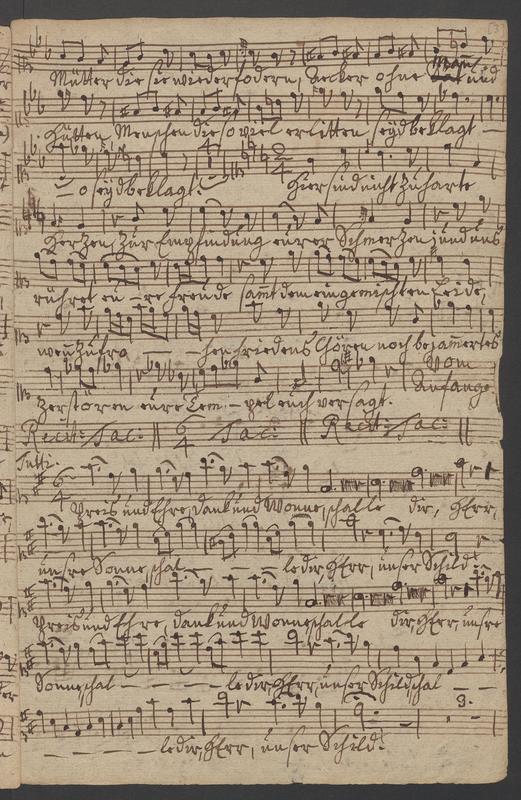 Mütter die sie wieder fodern, Aecker ohne Man̄ und
Hütten, Menschen die so viel erlitten seyd beklagt —
— o seyd beklagt. Hier sind nicht zu harte
Herzen, zur Empfindung eurer Schmerzen, und uns
rühret eu – re Freude samt dem eingemischten Leide,
wen̄ zu fro — — hen Friedens Chören noch bejam̄ertes
Vom
Anfange
Zerstören eure Tem – pel euch versagt.
Recit: Tac: 6/4 Tac: Recit: Tac:
Tutti.
Preis und Ehre, Dank und Wonne schalle dir, HErr,
unsre Sonne, schal — — — le dir, HErr, unser Schild.
Preis und Ehre, Dank und Wonne schalle dir, HErr, unsre
Sonne schal — — — le dir, HErr, unser Schild schal — —
— — — — le dir, HErr, unser Schild.